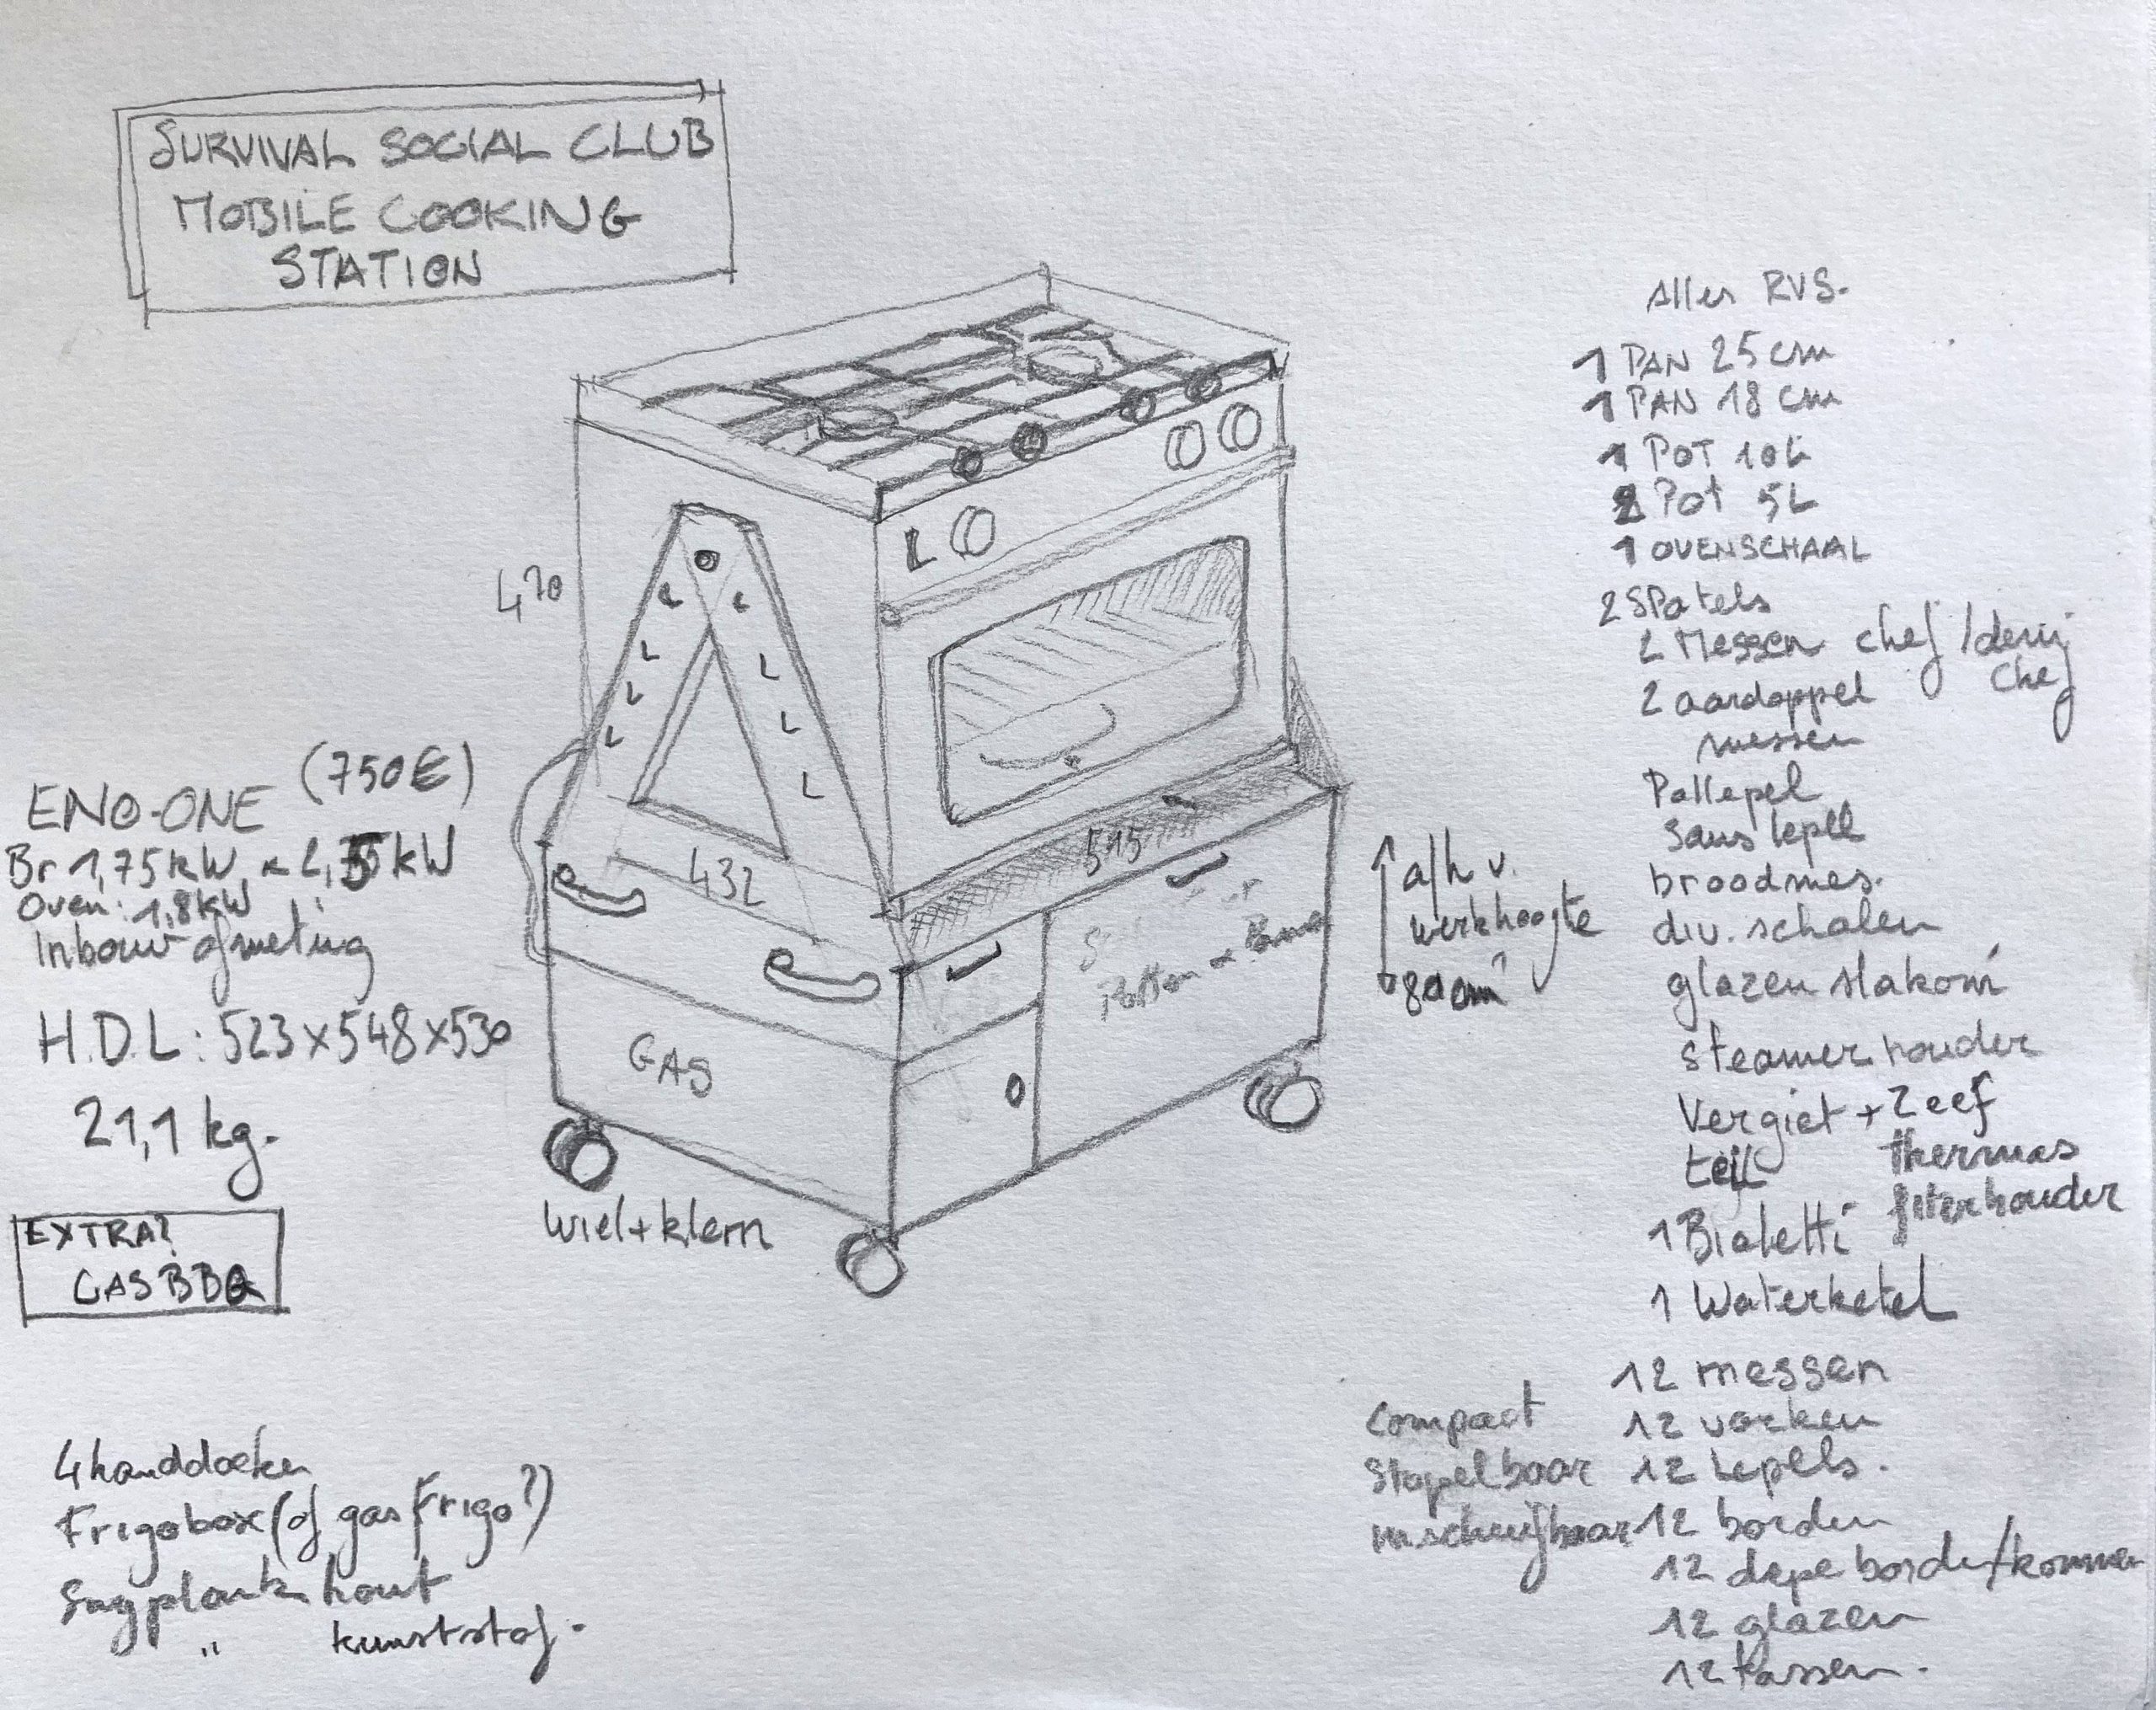 SURVIVAL SOCIAL CLUB
MOBILE COOKING
STATION
470
432
515
GAS
Potten
Wiel + klem
a/h v.
werkhoogte
80 cm
ENO-ONE (750€)
Br 1,75 kW
Oven: 1,8 kW
Inbouw afmeting
H.D.L: 523x548x530
21,1 kg.
EXTRA?
GASBBQ
4 handdoeken
Frigobox (of gas frigo?)
Snyplank hout
" kunststof.
Alles RVS.
1 PAN 25 cm
1 PAN 18 cm
1 POT 10L
2 Pot 5L
1 OVENSCHAAL
2 SPatels
2 Messen chef /
chef
2 aardappel
messen
Pollepel
Saus lepel
broodmes.
div. schalen
glazen slakom
steamer houder
Vergiet + Zeef
teil thermas
filterhouder
1 Bialetti
1 Waterketel
12 messen
12 vorken
12 lepels.
12 borden
12 diepe borden/kommen
12 glazen
12 tassen.
Compact
Stapelbaar
inschuifbaar